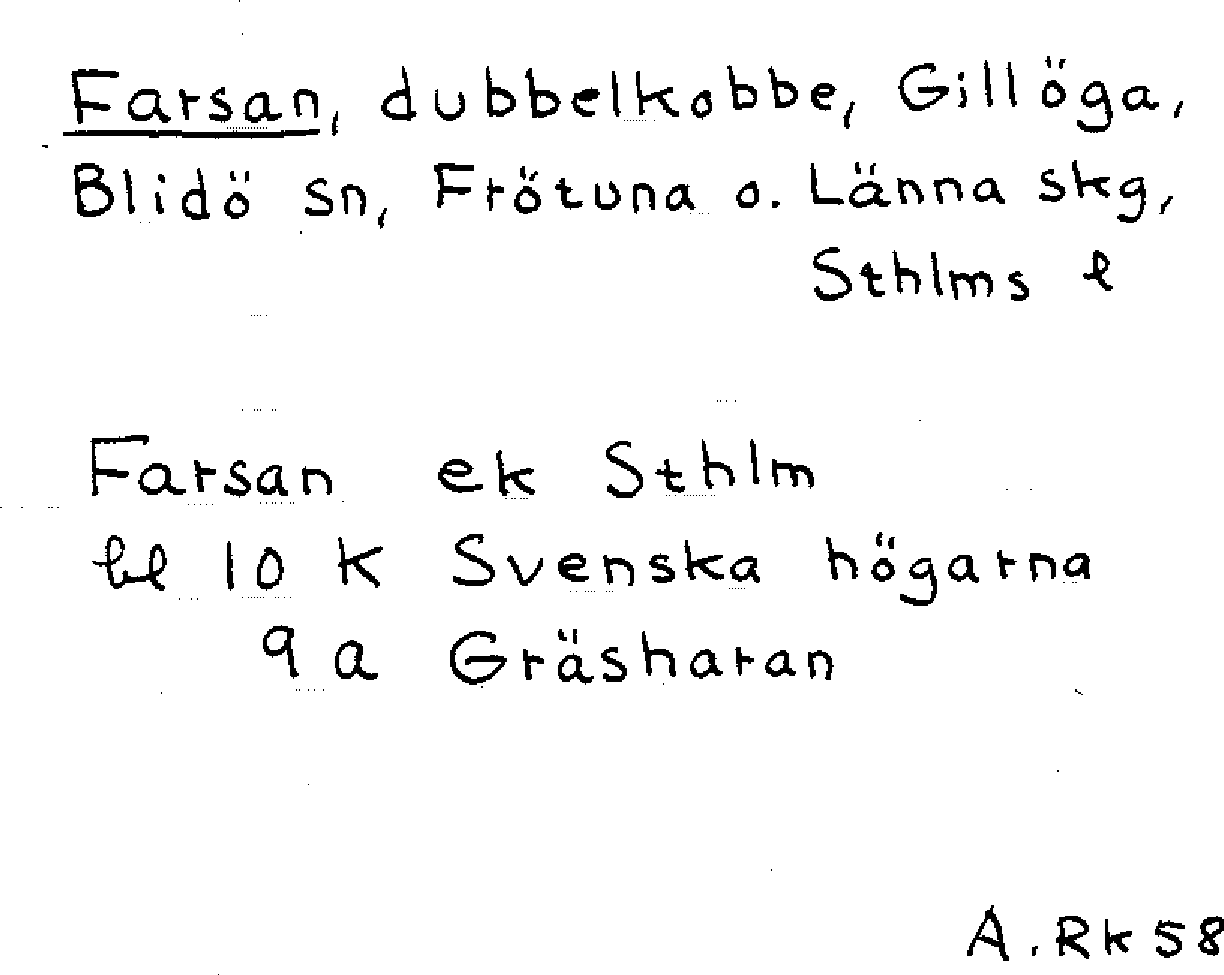 Farsan, dubbelkobbe, Gillöga,
Blidö sn, Frötuna o. Länna skg,
Sthlms l
Farsan ek Sthlm
bl 10 K Svenska högarna
9 a Gräsharan
A. Rk 58